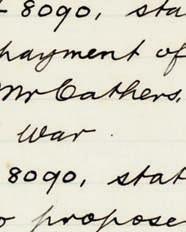 8090, sta
payment of
Mr Cathers.
War.
8090, stat
propose